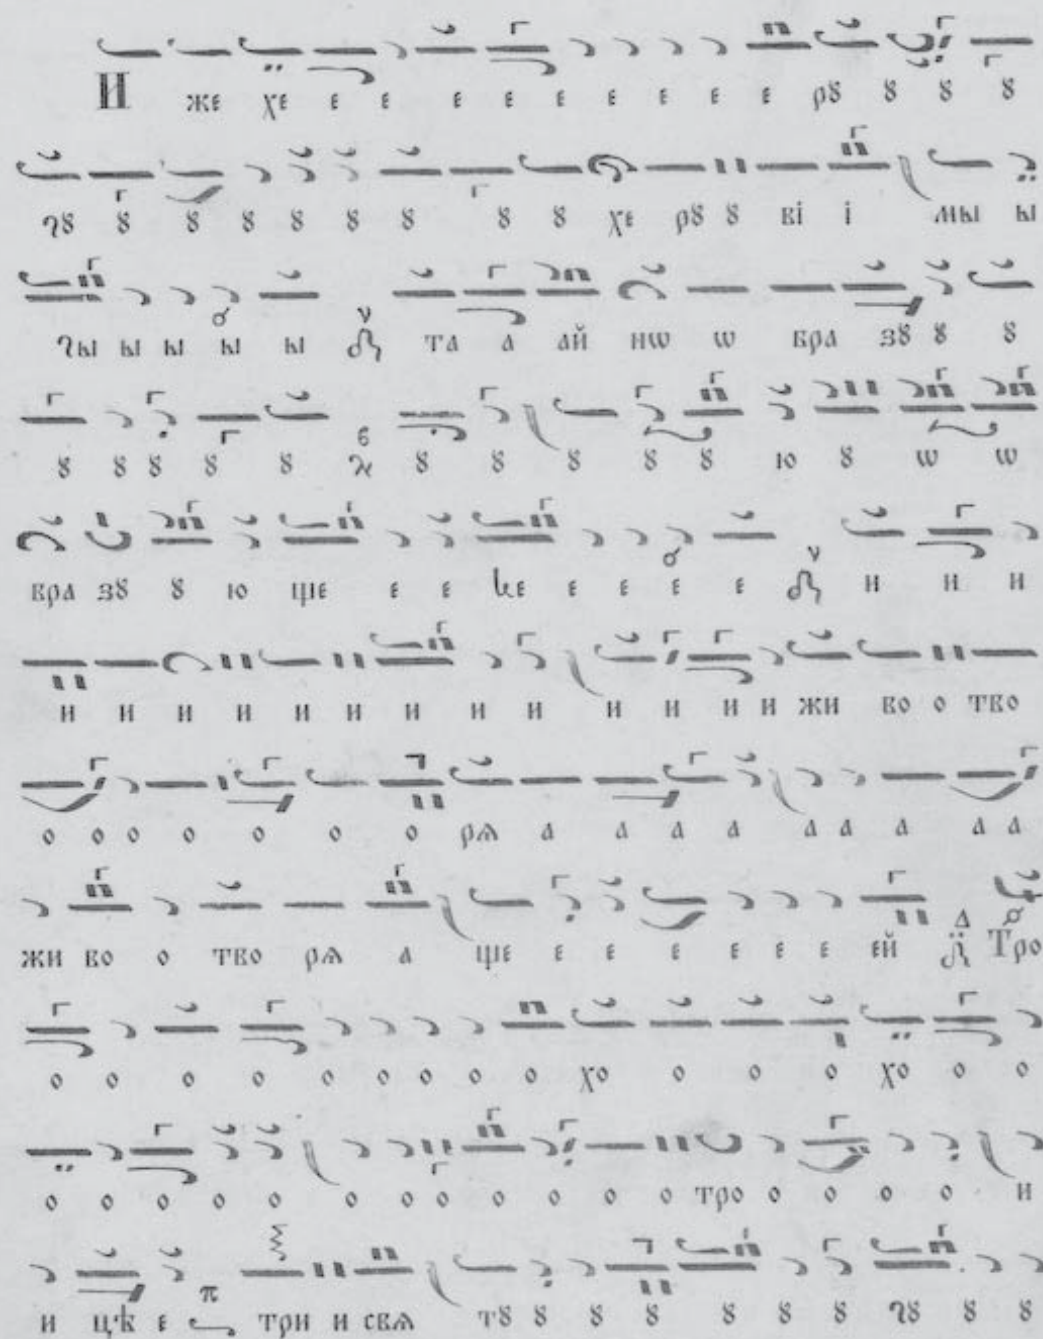 И же хе е е е е е е е е е е рꙋ ꙋ ꙋ ꙋ
гꙋ ꙋ ꙋ ꙋ ꙋ ꙋ ꙋ ꙋ ꙋ хе рꙋ ꙋ ві і мы ы
гы ы ы ы ы та а ай нѡ ѡ бра зꙋ ꙋ ꙋ
ꙋ ꙋ ꙋ ꙋ ꙋ ꙋ ꙋ ꙋ ꙋ ꙋ ю ꙋ ѡ ѡ
бра зꙋ ꙋ ю ще е е е е е е е и и и
и и и и и и и и и и и и и жи во о тво
о о о о о о о рѧ а а а а а а а а а
жи во о тво рѧ а ще е е е е е е ей Тро
о о о о о о о о о хо о о о хо о о
о о о о о о о о о о о о тро о о о о и
и цѣ е три и свѧ тꙋ ꙋ ꙋ ꙋ ꙋ ꙋ ꙋ гꙋ ꙋ ꙋ